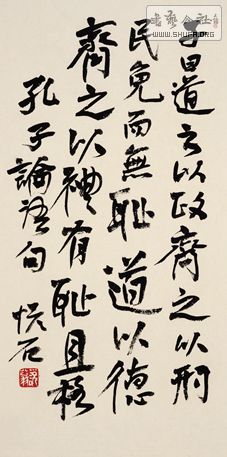 子曰道之以政齊之以刑
民免而無恥道以德
齊之以禮有恥且格
孔子論語句
悦石
書藝公社
www.SHUFA.ORG